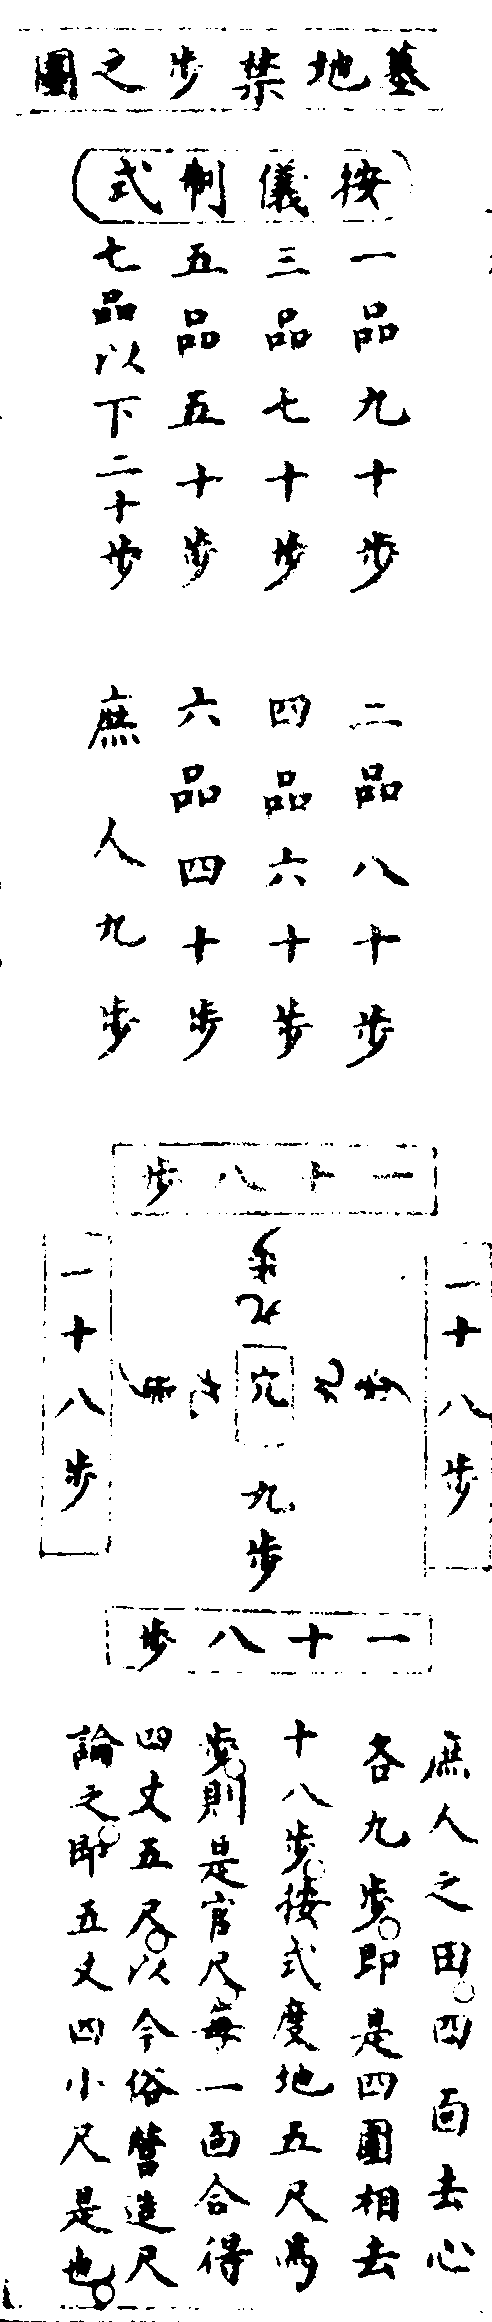 墓地禁步之圖
按儀制式
一品九十步
三品七十步
五品五十步
七品以下二十步
二品八十步
四品六十步
六品四十步
庶人九步
一十八步
一十八步
九步
九步
穴
九步
九步
一十八步
一十八步
庶人之田四面去心
各九步即是四圍相去
十八步按式度地五尺為
步則是官尺每一面合得
四丈五尺以今俗營造尺
論之即五丈四小尺是也